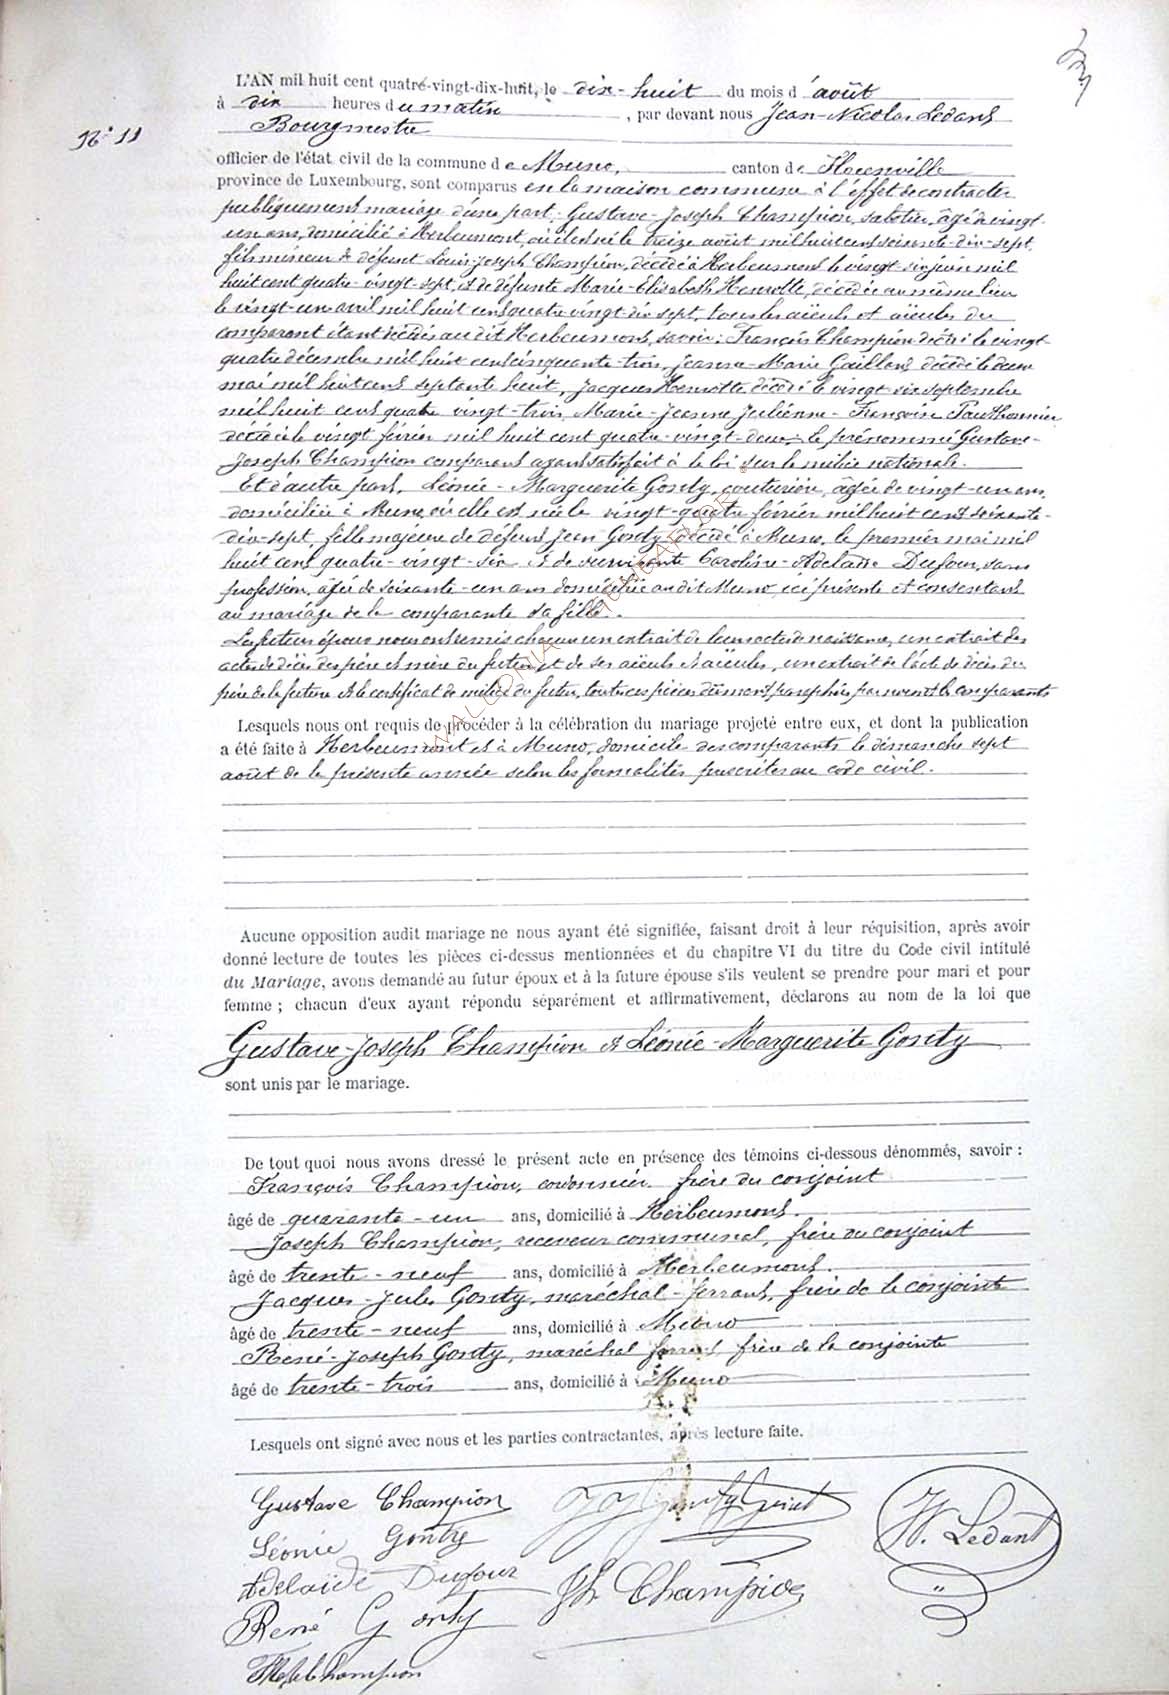 L'AN mil huit cent quatre-vingt-dix-huit, le dix-huit du mois d'août
à dix heures du matin, par devant nous Jean-Nicolas Ledant
Nº 11
Bourgmestre
officier de l'état civil de la commune de Muno, canton de Florenville
province de Luxembourg, sont comparus en la maison commune à l'effet de contracter
publiquement mariage d'une part: Gustave-Joseph Champion, sabotier, âgé de vingt-
un ans, domicilié à Herbeumont, où il est né le treize août mil huit cent soixante-dix-sept,
fils mineur de défunt Louis-Joseph Champion, décédé à Herbeumont le vingt-six juin mil
huit cent quatre-vingt-sept, et de défunte Marie-Elisabeth Henrotte, décédée au même lieu
le vingt-un avril mil huit cent quatre vingt dix sept, tous les aïeuls et aïeules du
comparant étant décédés au dit Herbeumont, savoir: François Champion décédé le vingt-
quatre décembre mil huit cent cinquante-trois, Jeanne-Marie Gaillard décédée le deux
mai mil huit cent septante huit, Jacques Henrotte décédé le vingt six septembre
mil huit cent quatre vingt-trois, Marie-Jeanne Julienne-Françoise
décédée le vingt février mil huit cent quatre-vingt-deux; le prénommé Gustave-
Joseph Champion comparant ayant satisfait à la loi sur la milice nationale.
Et d'autre part, Léonie-Marguerite Gonty, couturière, âgée de vingt-un ans,
domiciliée à Muno, où elle est née le vingt-quatre février mil huit cent soixante-
dix-sept, fille majeure de défunt Jean Gonty décédé à Muno, le premier mai mil
huit cent quatre-vingt-six et de survivante Caroline-Adelaïde Dufour, sans
profession, âgée de soixante-un ans domiciliée au dit Muno, ici présente et consentant
au mariage de la comparante sa fille.
Les futurs époux nous ont remis chacun un extrait de leur acte de naissance, un extrait des
actes de décès des père et mère du futur, et de ses aïeuls et aïeules, un extrait de l'acte de décès du
père de la future et le certificat de milice du futur, toutes ces pièces dûment paraphées par nous et les comparants
Lesquels nous ont requis de procéder à la célébration du mariage projeté entre eux, et dont la publication
a été faite à Herbeumont et à Muno, domicile des comparants le dimanche sept
août de la présente année selon les formalités prescrites au code civil.
Aucune opposition audit mariage ne nous ayant été signifiée, faisant droit à leur réquisition, après avoir
donné lecture de toutes les pièces ci-dessus mentionnées et du chapitre VI du titre du Code civil intitulé
du Mariage, avons demandé au futur époux et à la future épouse s'ils veulent se prendre pour mari et pour
femme ; chacun d'eux ayant répondu séparément et affirmativement, déclarons au nom de la loi que
Gustave-Joseph Champion et Léonie-Marguerite Gonty
sont unis par le mariage.
De tout quoi nous avons dressé le présent acte en présence des témoins ci-dessous dénommés, savoir :
François Champion, cordonnier, frère du conjoint
âgé de quarante-un ans, domicilié à Herbeumont.
Joseph Champion, receveur communal, frère du conjoint
âgé de trente-neuf ans, domicilié à Herbeumont.
Jacques-Jules Gonty, maréchal-ferrant, frère de la conjointe
âgé de trente-neuf ans, domicilié à Muno
René-Joseph Gonty, maréchal ferrant frère de la conjointe
âgé de trente-trois ans, domicilié à Muno
Lesquels ont signé avec nous et les parties contractantes, après lecture faite.
Gustave Champion
Léonie Gonty
Adelaïde Dufour
René Gonty
Champion
Jh Champion
N. Ledant